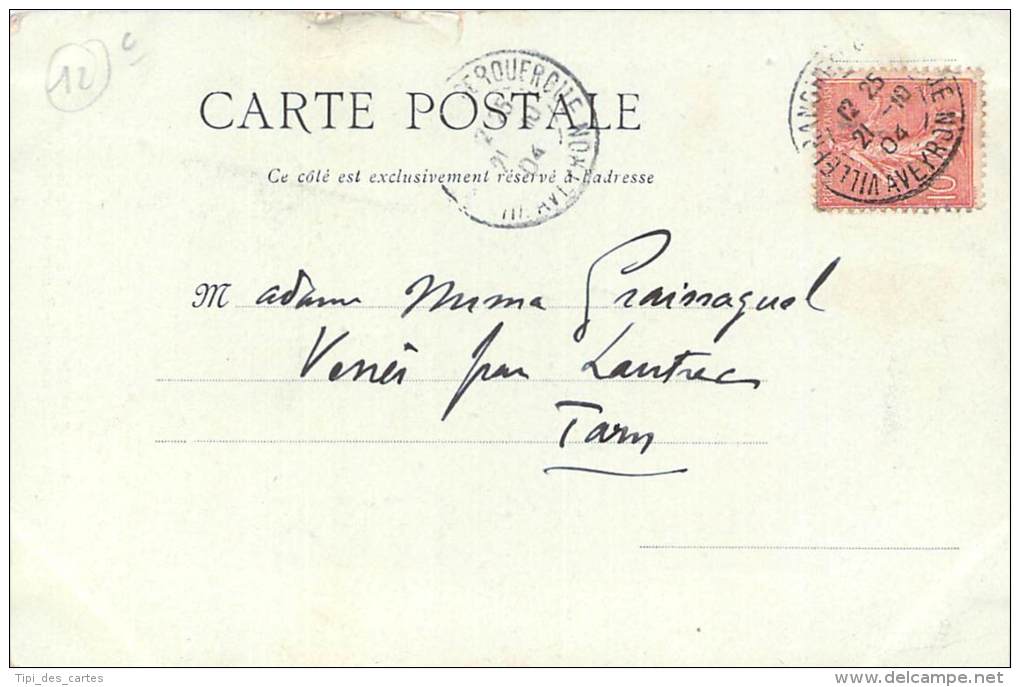 12 c
CARTE POSTALE
Ce côté est exclusivement réservé à l'adresse
DE ROUERGUE
12 25
21 -10
04
AVEYRON
VILLEFRANCHE DE
12 25
21 -10
04
AVEYRON
10
Madame Numa Graissaguel
Venés par Lautrec
Tarn
Tipi_des_cartes
delcampe.net